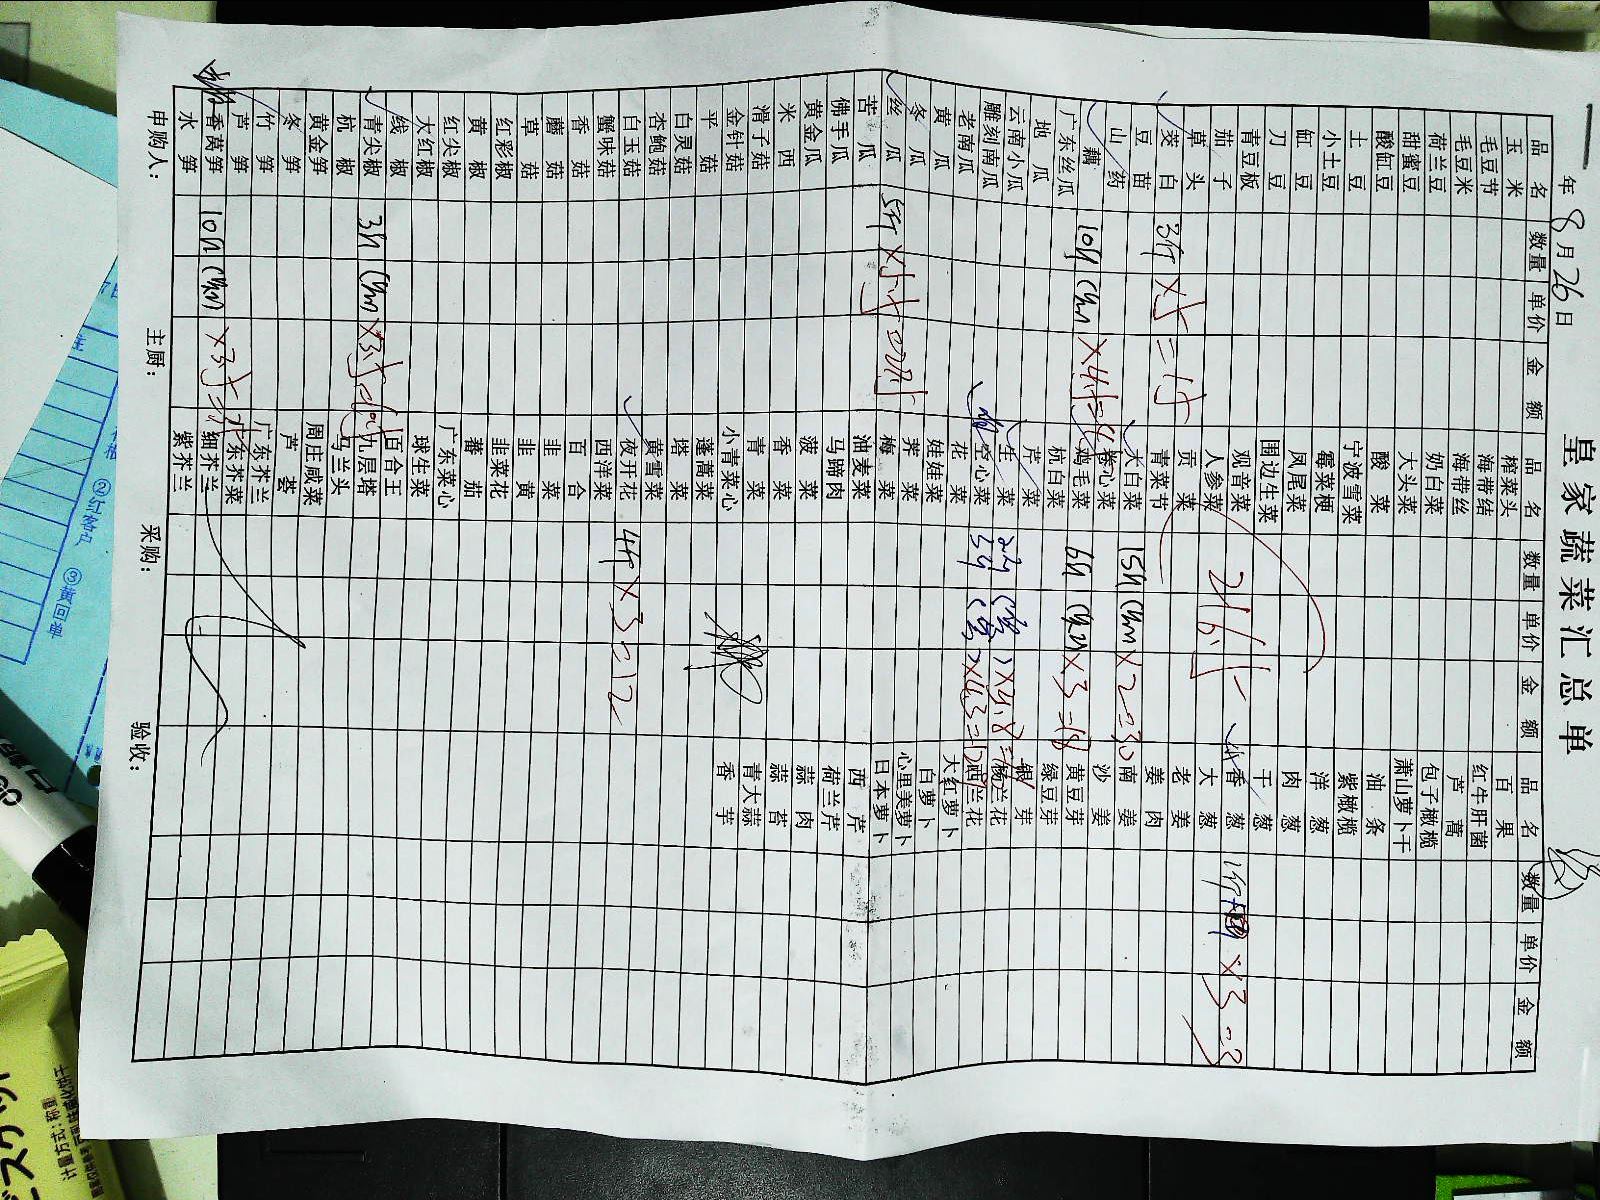 皇家蔬菜汇总单
年8月26日
品名 数量 单价 金额 品名 数量 单价 金额 品名 数量 单价 金额
玉米 榨菜头 百果
毛豆节 海带结 红牛肝菌
毛豆米 海带丝 芦蒿
荷兰豆 奶白菜 包子橄榄
甜蜜豆 大头菜 萧山萝卜干
酸缸豆 酸菜 油条
土豆 宁波雪菜 紫橄榄
小土豆 霉菜梗 洋葱
缸豆 凤尾菜 肉葱
刀豆 围边生菜 干葱
青豆板 观音菜 香葱 1斤 ×3=3
茄子 人参菜 216.5 大葱
草头 贡菜 老姜
茭白 3斤 ×5=15 青菜节 姜肉
豆苗 大白菜 15斤 ×2=30 南姜
山药 卷心菜 沙姜
藕 10斤 ×4.5 鸡毛菜 6斤 ×3=18 黄豆芽
广东丝瓜 杭白菜 绿豆芽
地瓜 芹菜 银芽
云南小瓜 生菜 2斤 ×4.8 杨兰花
雕刻南瓜 空心菜 5斤 西兰花
老南瓜 花菜 大红萝卜
黄瓜 娃娃菜 白萝卜
冬瓜 荠菜 心里美萝卜
丝瓜 5斤 ×5.5 梅菜 日本萝卜
苦瓜 油麦菜 西芹
佛手瓜 马蹄肉 荷兰芹
黄金瓜 菠菜 蒜肉
米西 香菜 蒜苔
滑子菇 青菜 青大蒜
金针菇 小青菜心 香芋
平菇 蓬蒿菜
白灵菇 塔菜
杏鲍菇 黄雪菜
白玉菇 夜开花 4斤 ×3=12
蟹味菇 西洋菜
香菇 百合
蘑菇 韭菜
草菇 韭黄
红彩椒 韭菜花
黄椒 蕃茄
红尖椒 广东菜心
大红椒 球生菜
线椒 百合王
青尖椒 3斤 九层塔
杭椒 马兰头
黄金笋 周庄咸菜
冬笋 芦荟
竹笋 广东芥兰
芦笋 广东芥菜
香莴笋 10斤 细芥兰
水笋 紫芥兰
申购人： 主厨： 采购： 验收：
②红客户 ③黄回单
计量方式:称重